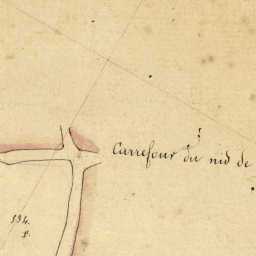 Carrefour du nid de
134.
P.